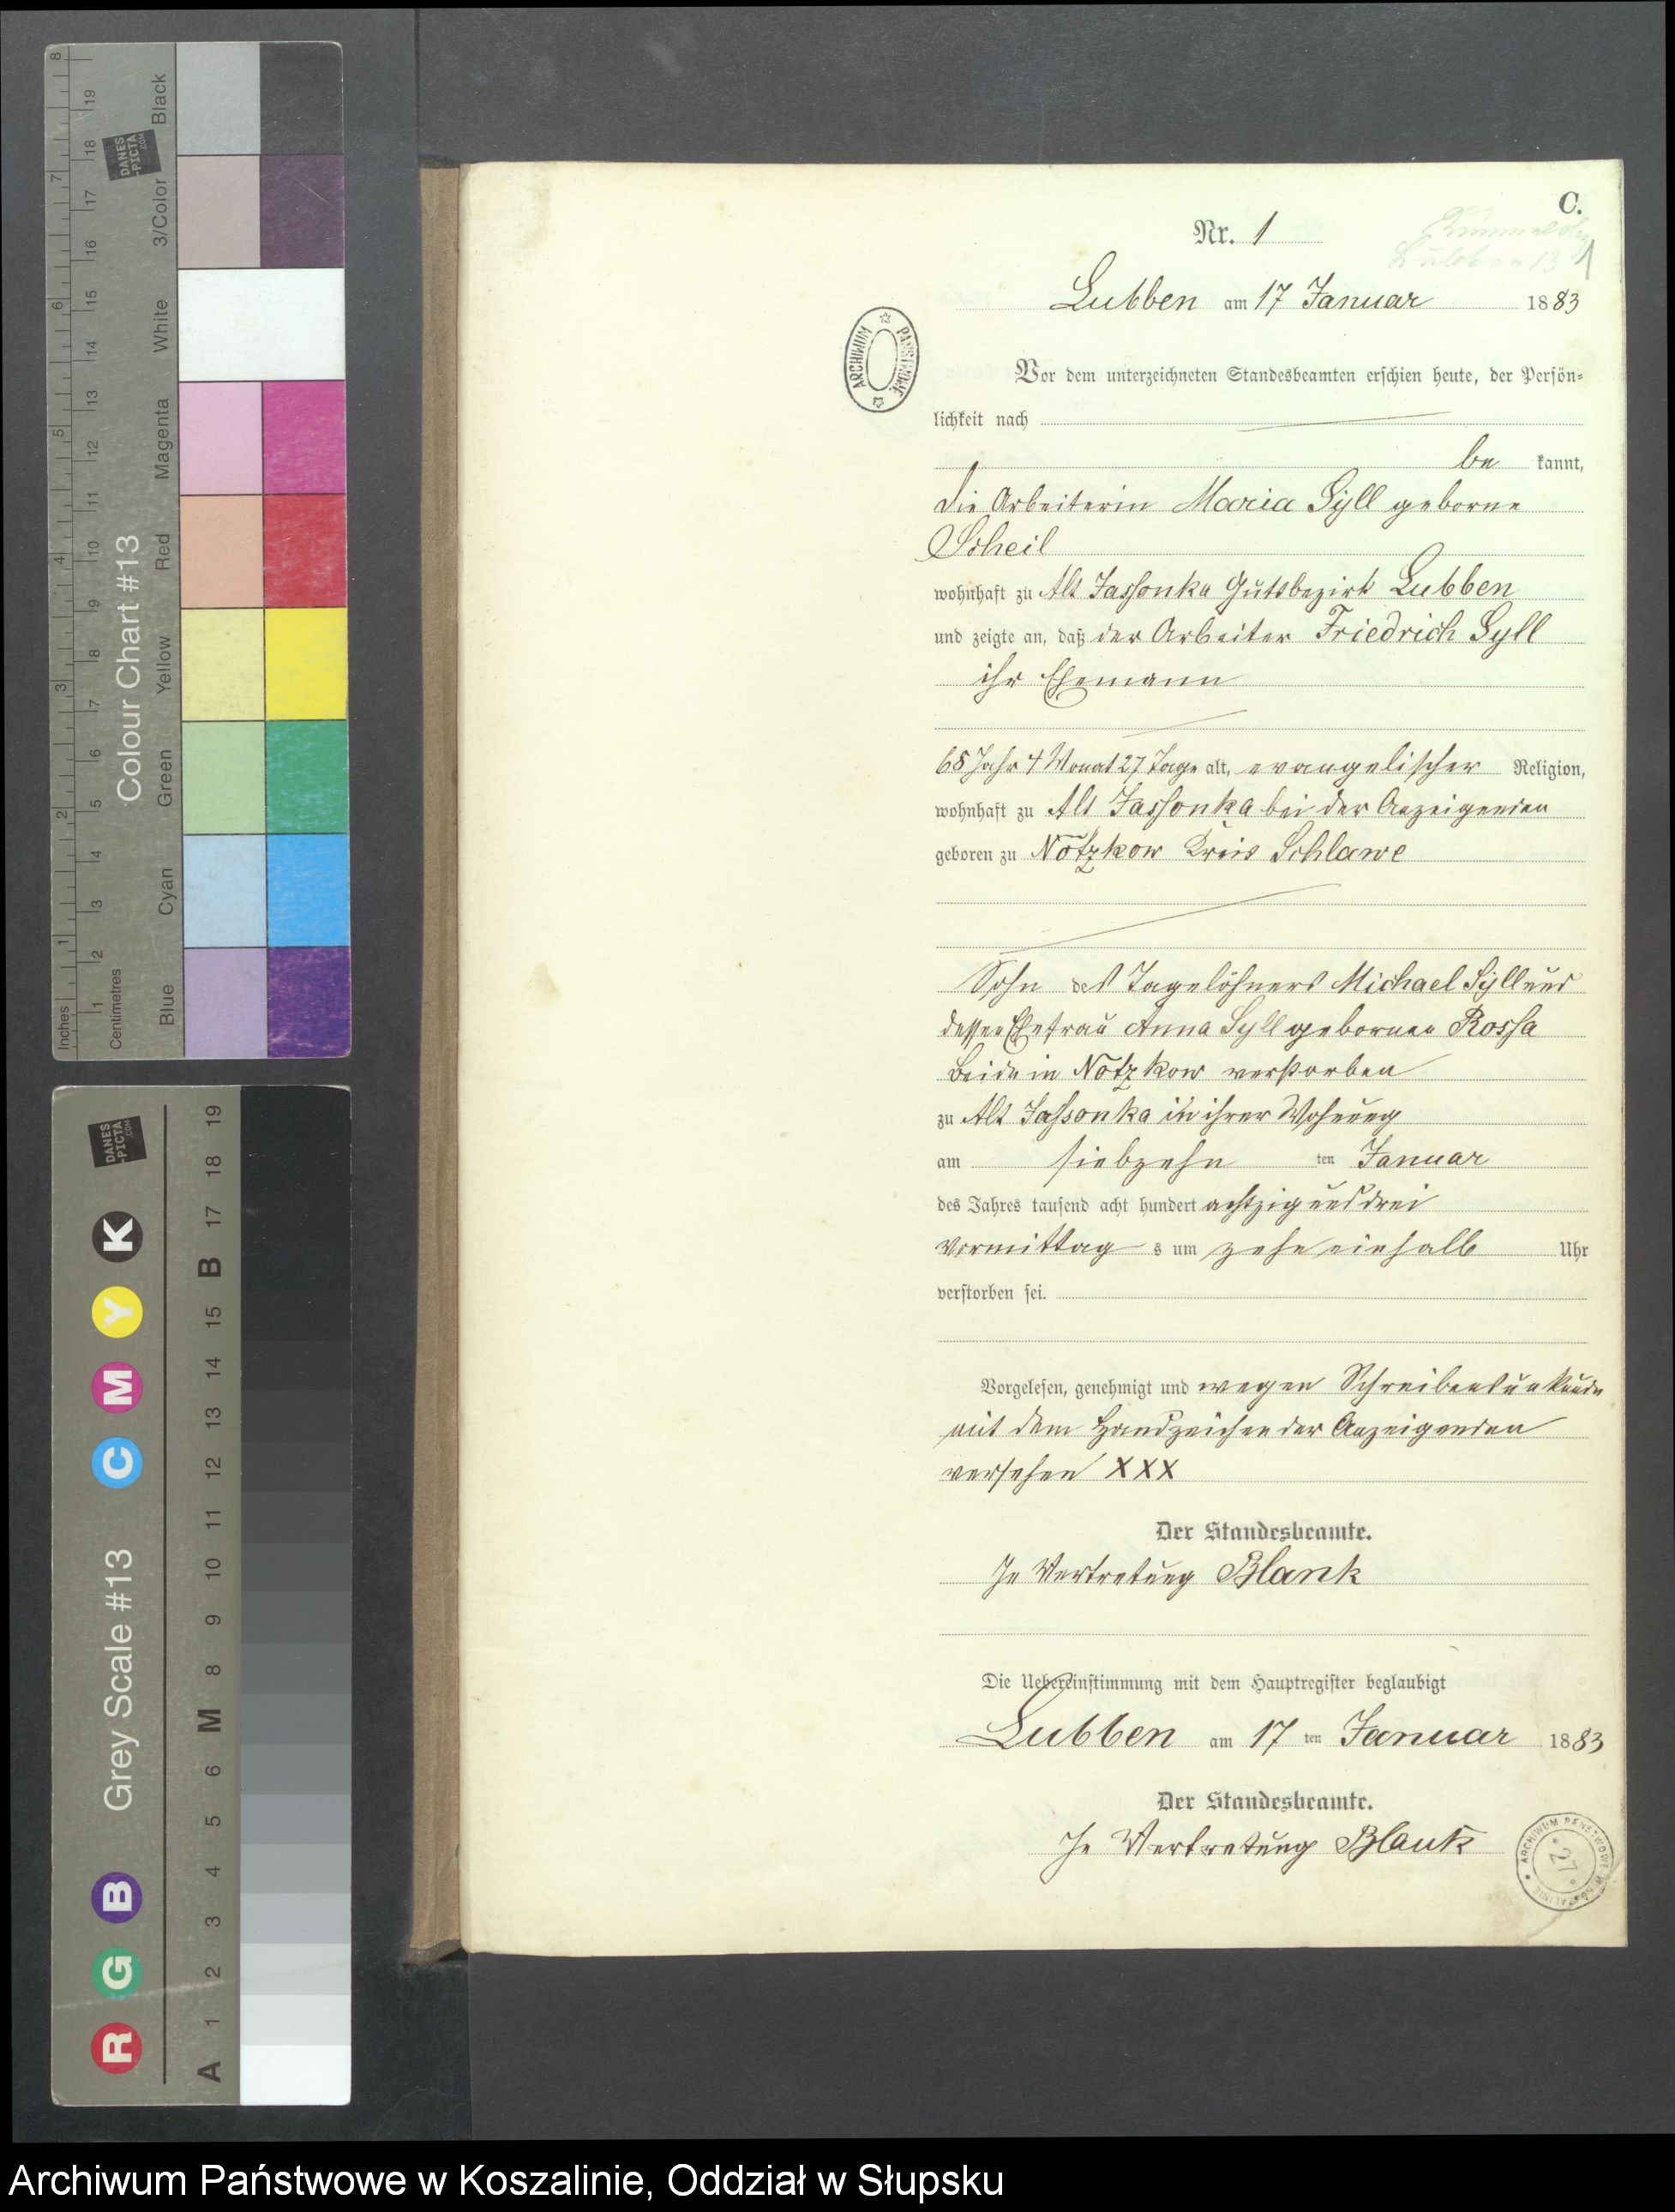 C.
Nr. 1
1
Lubben am 17 Januar 1883
ARCHIWUM PAŃSTWOWE
Vor dem unterzeichneten Standesbeamten erschien heute, der Persön-
lichkeit nach
be kannt,
die Arbeiterin Maria Syll geborne
Scheil
wohnhaft zu Alt Jassonka Gutsbezirk Lubben
und zeigte an, daß der Arbeiter Friedrich Syll
ihr Ehemann
68 Jahr 4 Monat 27 Tage alt, evangelischer Religion,
wohnhaft zu Alt Jassonka bei der Anzeigenden
geboren zu Nötzkow Kreis Schlawe
Sohn des Tagelöhners Michael Syll und
dessen Ehefrau Anna Syll gebornen Rossa
Beide in Nötzkow verstorben
zu Alt Jassonka in ihrer Wohnung
am siebzehn ten Januar
des Jahres tausend acht hundert achtzig und drei
Vormittag s um zehn einhalb Uhr
verstorben sei.
Vorgelesen, genehmigt und wegen Schreibensunkunde
mit dem Handzeichen der Anzeigenden
versehen XXX
Der Standesbeamte.
In Vertretung Blank
Die Uebereinstimmung mit dem Hauptregister beglaubigt
Lubben am 17 ten Januar 1883
Der Standesbeamte.
In Vertretung Blank
ARCHIWUM PAŃSTWOWE W KOSZALINIE
Inches 1 2 3 4 5 6 7 8
Centimetres 1 2 3 4 5 6 7 8 9 10 11 12 13 14 15 16 17 18 19
Colour Chart #13
Blue Cyan Green Yellow Red Magenta White 3/Color Black
DANES
-PICTA
.COM
Grey Scale #13
R G B C M Y K
A 1 2 3 4 5 6 M 8 9 10 11 12 13 14 15 B 17 18 19
DANES
-PICTA
.COM
Archiwum Państwowe w Koszalinie, Oddział w Słupsku